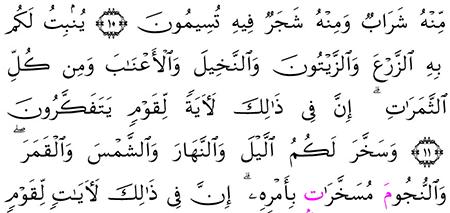 مِّنْهُ شَرَابٌ وَمِنْهُ شَجَرٌ فِيهِ تُسِيمُونَ ﴿١٠﴾ يُنۢبِتُ لَكُم
بِهِ ٱلزَّرْعَ وَٱلزَّيْتُونَ وَٱلنَّخِيلَ وَٱلْأَعْنَٰبَ وَمِن كُلِّ
ٱلثَّمَرَٰتِ ۗ إِنَّ فِى ذَٰلِكَ لَأَيَةً لِّقَوْمٍ يَتَفَكَّرُونَ
﴿١١﴾ وَسَخَّرَ لَكُمُ ٱلَّيْلَ وَٱلنَّهَارَ وَٱلشَّمْسَ وَٱلْقَمَرَ ۖ
وَٱلنُّجُومَ مُسَخَّرَٰتٍ بِأَمْرِهِۦ ۗ إِنَّ فِى ذَٰلِكَ لَأَيَٰتٍ لِّقَوْمٍ